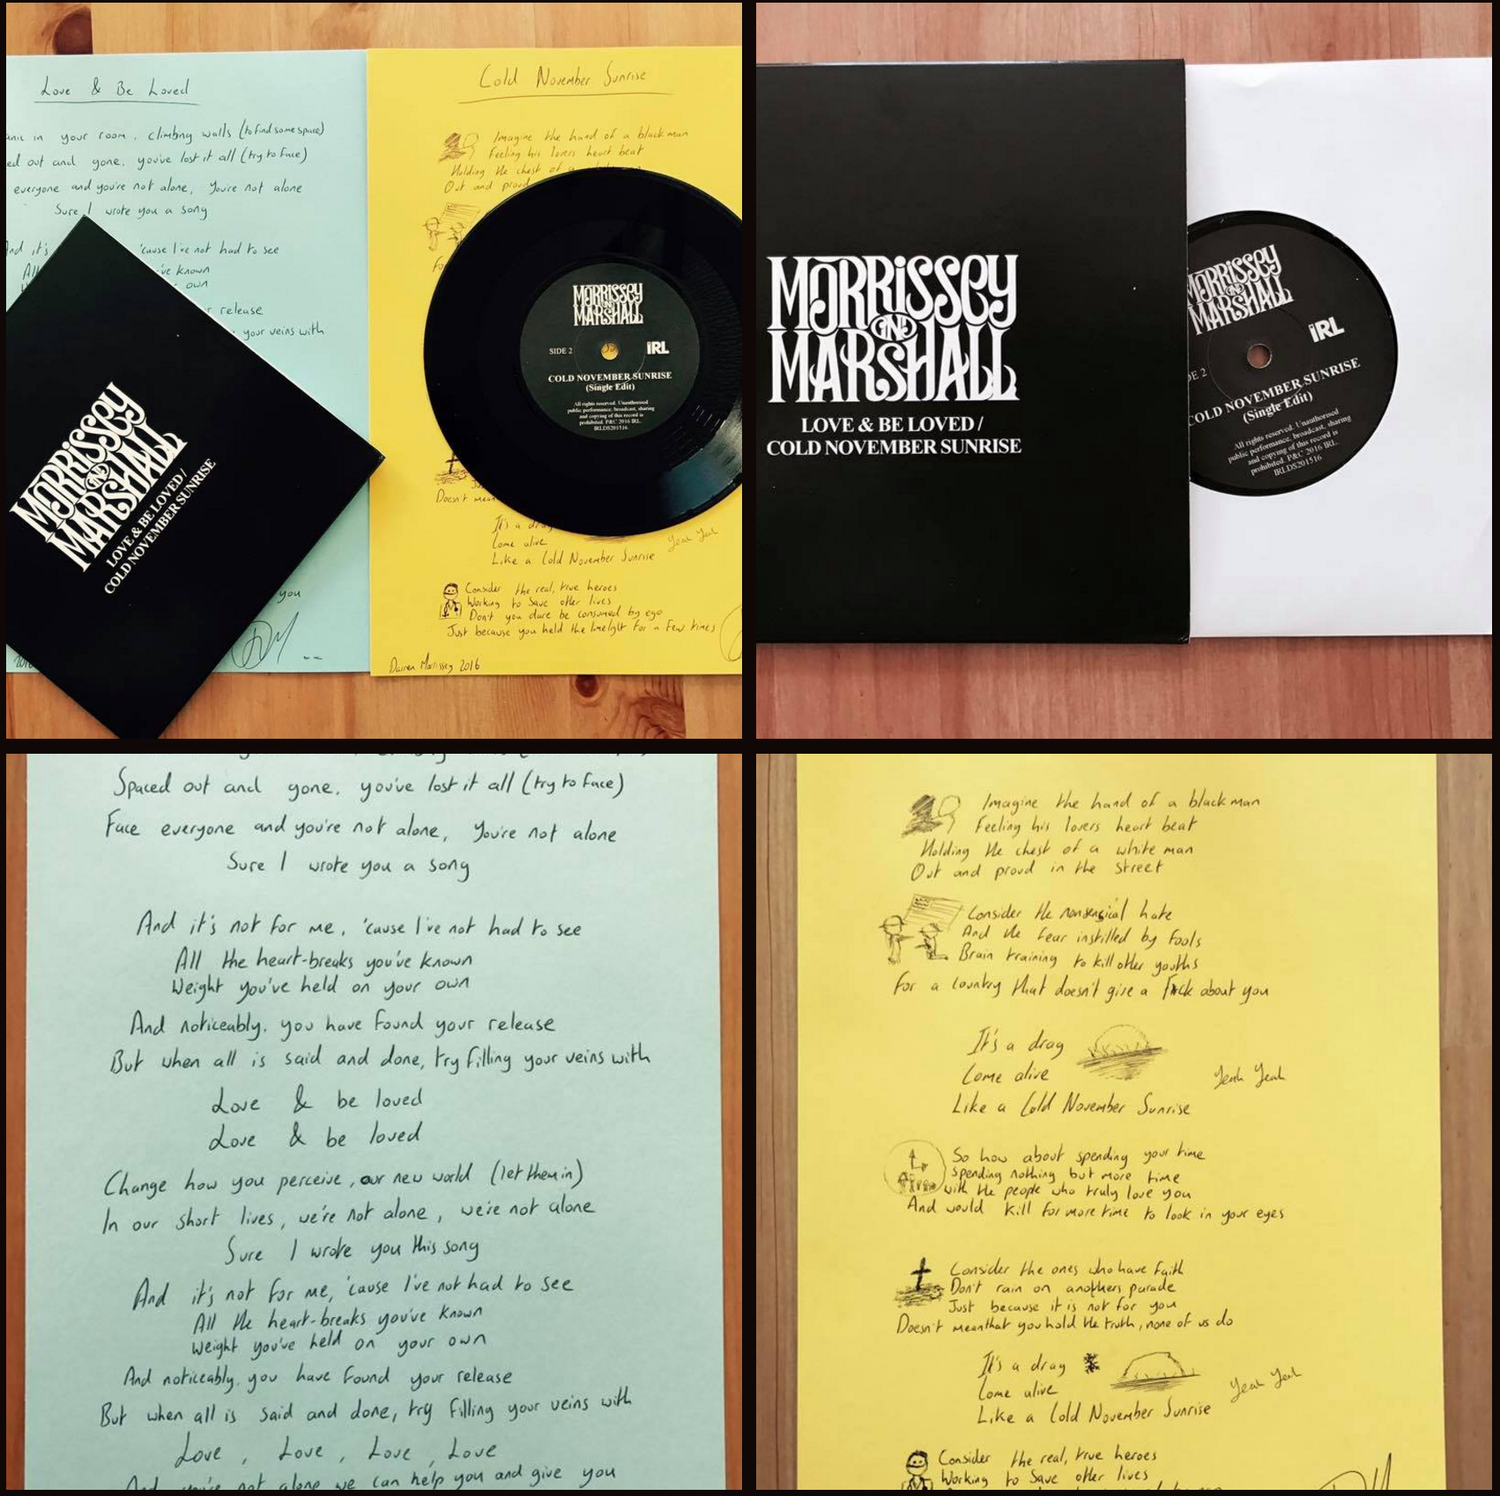 Love & Be Loved
in your room, climbing walls (to find some space)
ed out and gone, you've lost it all (try to face)
everyone and you're not alone, you're not alone
Sure I wrote you a song
And it's 'cause I've not had to see
All 've known
own
release
your veins with
you
MORRISSEY
AND
MARSHALL
LOVE & BE LOVED /
COLD NOVEMBER SUNRISE
Cold November Sunrise
Imagine the hand of a black man
Feeling his lovers heart beat
Holding the chest of a
Out and proud
MORRISSEY
AND
MARSHALL
SIDE 2
iRL
COLD NOVEMBER SUNRISE
(Single Edit)
All rights reserved. Unauthorised
public performance, broadcast, sharing
and copying of this record is
prohibited. P&C 2016 IRL.
IRLDS201516
Doesn't mean
It's a drag
Come alive
Like a Cold November Sunrise
Yeah Yeah
Consider the real, true heroes
Working to save other lives
Don't you dare be consumed by ego
Just because you held the limelight for a few times
Darren Morrissey 2016
MORRISSEY
AND
MARSHALL
LOVE & BE LOVED /
COLD NOVEMBER SUNRISE
MORRISSEY
MARSHALL
DE 2
iRL
COLD NOVEMBER SUNRISE
(Single Edit)
All rights reserved. Unauthorised
public performance, broadcast, sharing
and copying of this record is
prohibited. P&C 2016 IRL.
IRLDS201516
Spaced out and gone, you've lost it all (try to face)
Face everyone and you're not alone, you're not alone
Sure I wrote you a song
And it's not for me, 'cause I've not had to see
All the heart-breaks you've known
Weight you've held on your own
And noticeably, you have found your release
But when all is said and done, try filling your veins with
Love & be loved
Love & be loved
Change how you perceive, our new world (let them in)
In our short lives, we're not alone, we're not alone
Sure I wrote you this song
And it's not for me, 'cause I've not had to see
All the heart-breaks you've known
Weight you've held on your own
And noticeably, you have found your release
But when all is said and done, try filling your veins with
Love, Love, Love, Love
And you're not alone we can help you and give you
Imagine the hand of a black man
Feeling his lovers heart beat
Holding the chest of a white man
Out and proud in the street
Consider the nonsensical hate
And the fear instilled by fools
Brain training to kill other youths
For a country that doesn't give a F*ck about you
It's a drag
Come alive
Yeah Yeah
Like a Cold November Sunrise
So how about spending your time
Spending nothing but more time
with the people who truly love you
And would kill for more time to look in your eyes
Consider the ones who have faith
Don't rain on anothers parade
Just because it is not for you
Doesn't mean that you hold the truth, none of us do
It's a drag
Come alive
Yeah Yeah
Like a Cold November Sunrise
Consider the real, true heroes
Working to save other lives